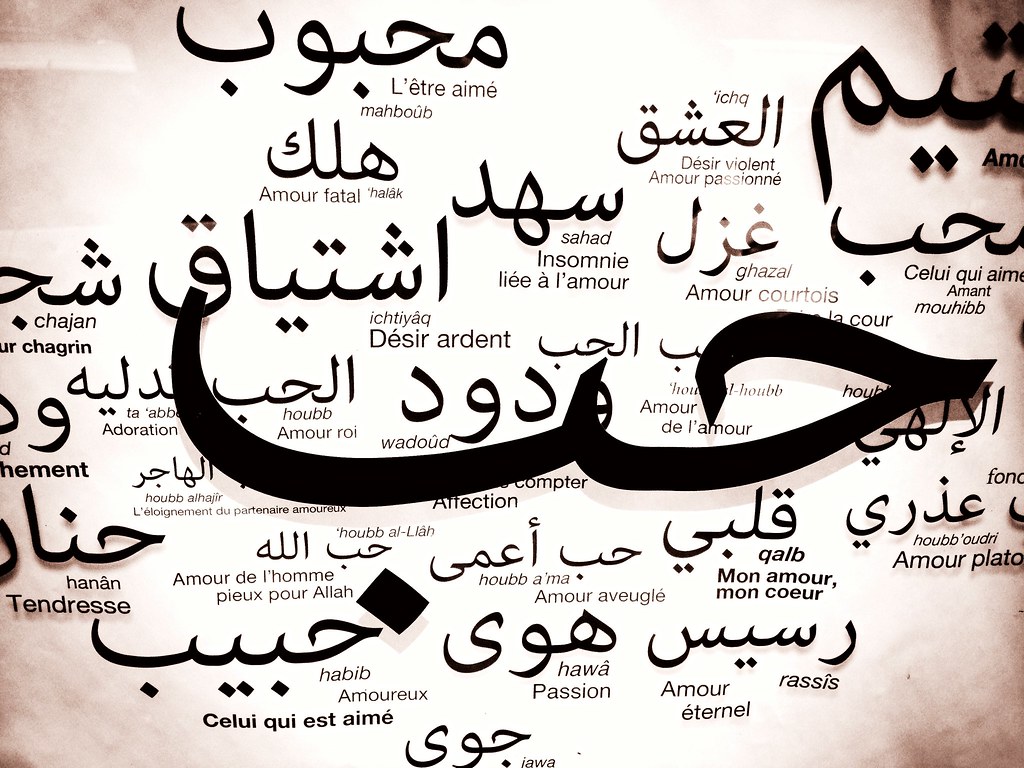 محبوب
L'être aimé
mahboûb
هلك
Amour fatal 'halâk
العشق
'ichq
Désir violent
Amour passionné
سهد
sahad
Insomnie
liée à l'amour
غزل
ghazal
Amour courtois
la cour
Celui qui aime
Amant
mouhibb
اشتياق
ichtiyâq
Désir ardent
chajan
chagrin
حب
الحب
houbb
Amour roi
Adoration
ودود
wadoûd
compter
Affection
حب الحب
al-houbb
Amour
de l'amour
الإلهي
الهاجر
houbb alhajir
L'éloignement du partenaire amoureux
حنان
hanân
Tendresse
حب الله
'houbb al-Llâh
Amour de l'homme
pieux pour Allah
حب أعمى
houbb a'ma
Amour aveuglé
قلبي
qalb
Mon amour,
mon coeur
عذري
houbb'oudri
Amour
حبيب
habib
Amoureux
Celui qui est aimé
هوى
hawâ
Passion
رسيس
rassîs
Amour
éternel
جوى
jawa